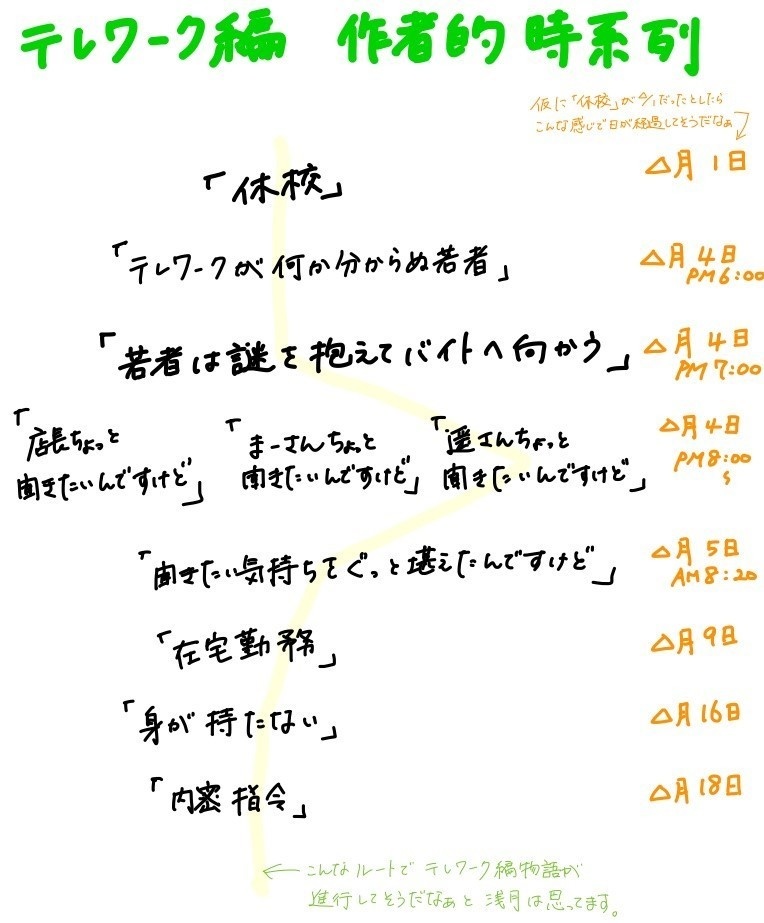 テレワーク編 作者的時系列
仮に「休校」が△/1だったとしたら
こんな感じで日が経過してそうだなぁ
「休校」 △月1日
「テレワークが何か分からぬ若者」 △月4日
PM6:00
「若者は謎を抱えてバイトへ向かう」 △月4日
PM7:00
「店長ちょっと 「まーさんちょっと 「遥さんちょっと △月4日
聞きたいんですけど」 聞きたいんですけど」 聞きたいんですけど」 PM8:00
〜
「聞きたい気持ちをぐっと堪えたんですけど」 △月5日
AM8:20
「在宅勤務」 △月9日
「身が持たない」 △月16日
「内密指令」 △月18日
←こんなルートでテレワーク編物語が
進行してそうだなぁと浅月は思ってます。